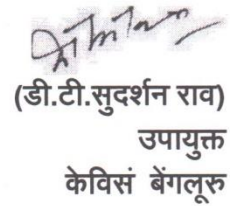 (डी.टी.सुदर्शन राव)
उपायुक्त
केविसं बेंगलूरु